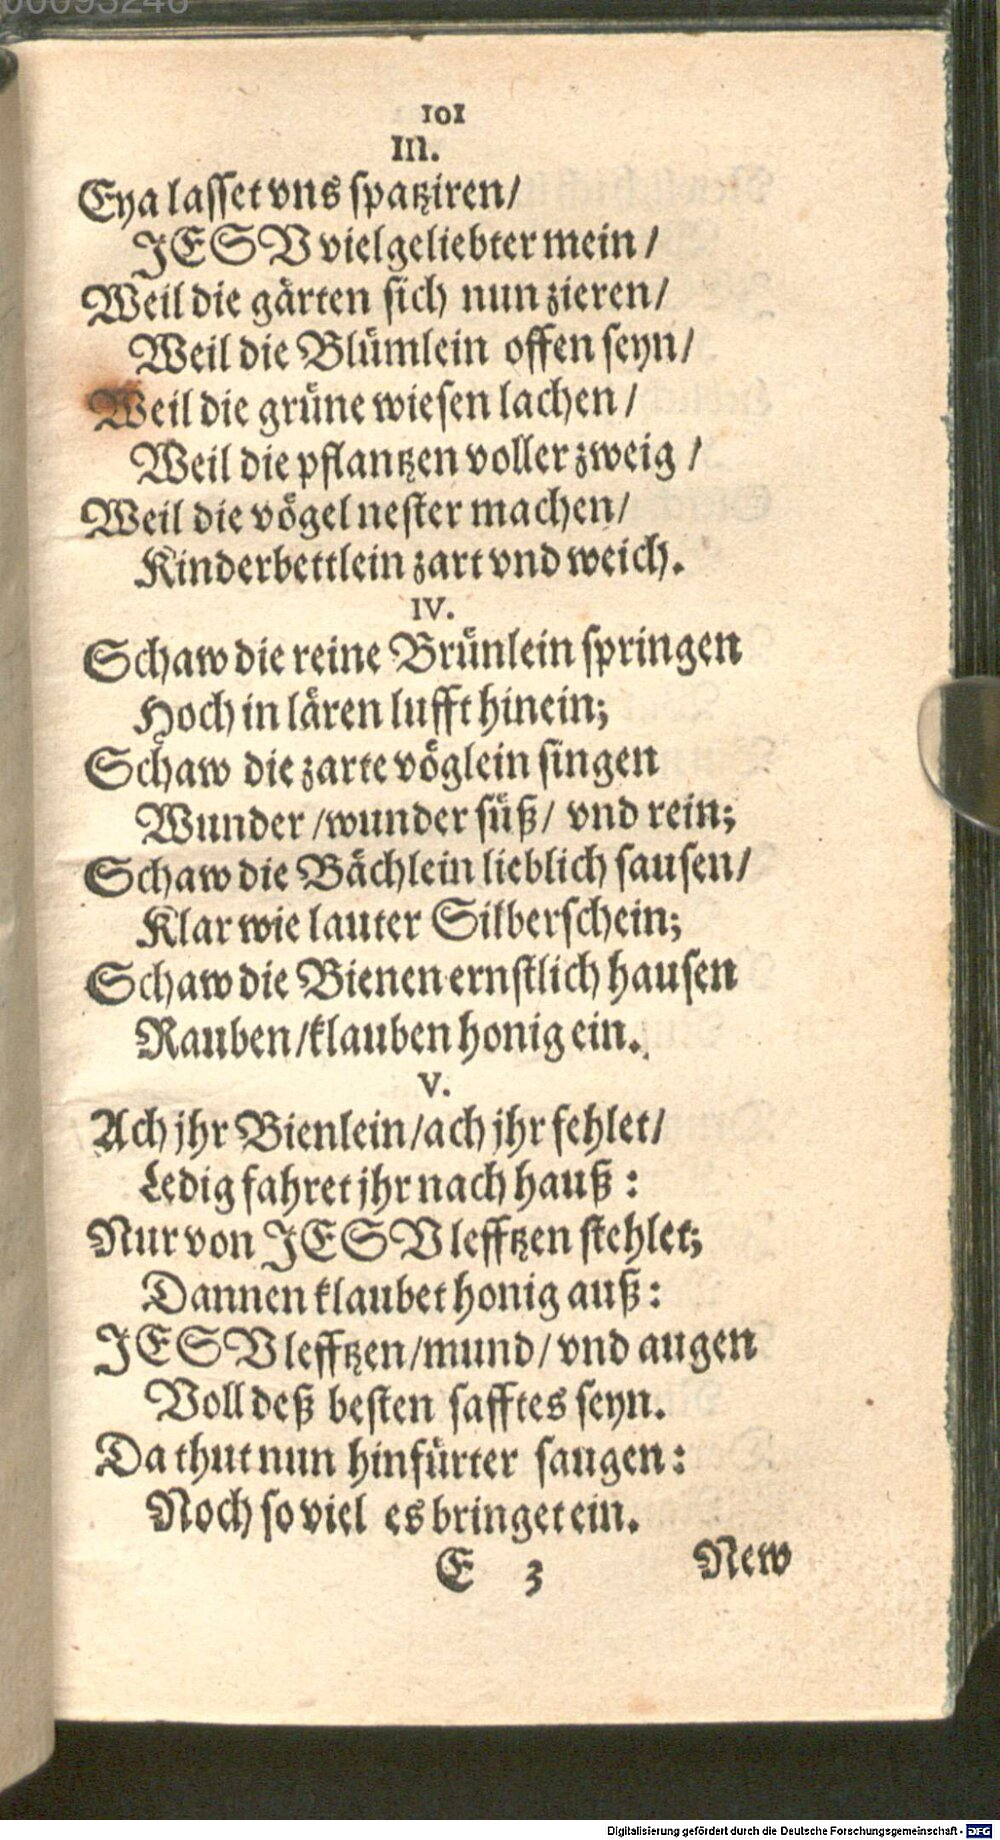 00093246
101
III.
Eya lasset vns spatziren/
JESV vielgeliebter mein /
Weil die gärten sich nun zieren/
Weil die Blümlein offen seyn/
Weil die grüne wiesen lachen /
Weil die pflantzen voller zweig /
Weil die vögel nester machen/
Kinderbettlein zart vnd weich.
IV.
Schaw die reine Brünlein springen
Hoch in lären lufft hinein;
Schaw die zarte vöglein singen
Wunder /wunder süß/ vnd rein;
Schaw die Bächlein lieblich sausen/
Klar wie lauter Silberschein;
Schaw die Bienen ernstlich hausen
Rauben/klauben honig ein.
V.
Ach jhr Bienlein/ach jhr fehlet/
Ledig fahret jhr nach hauß :
Nur von JESV lefftzen stehlet;
Dannen klaubet honig auß :
JESV lefftzen/mund/ vnd augen
Voll deß besten safftes seyn.
Da thut nun hinfürter saugen :
Noch so viel es bringet ein.
E 3 New
Digitalisierung gefördert durch die Deutsche Forschungsgemeinschaft - DFG